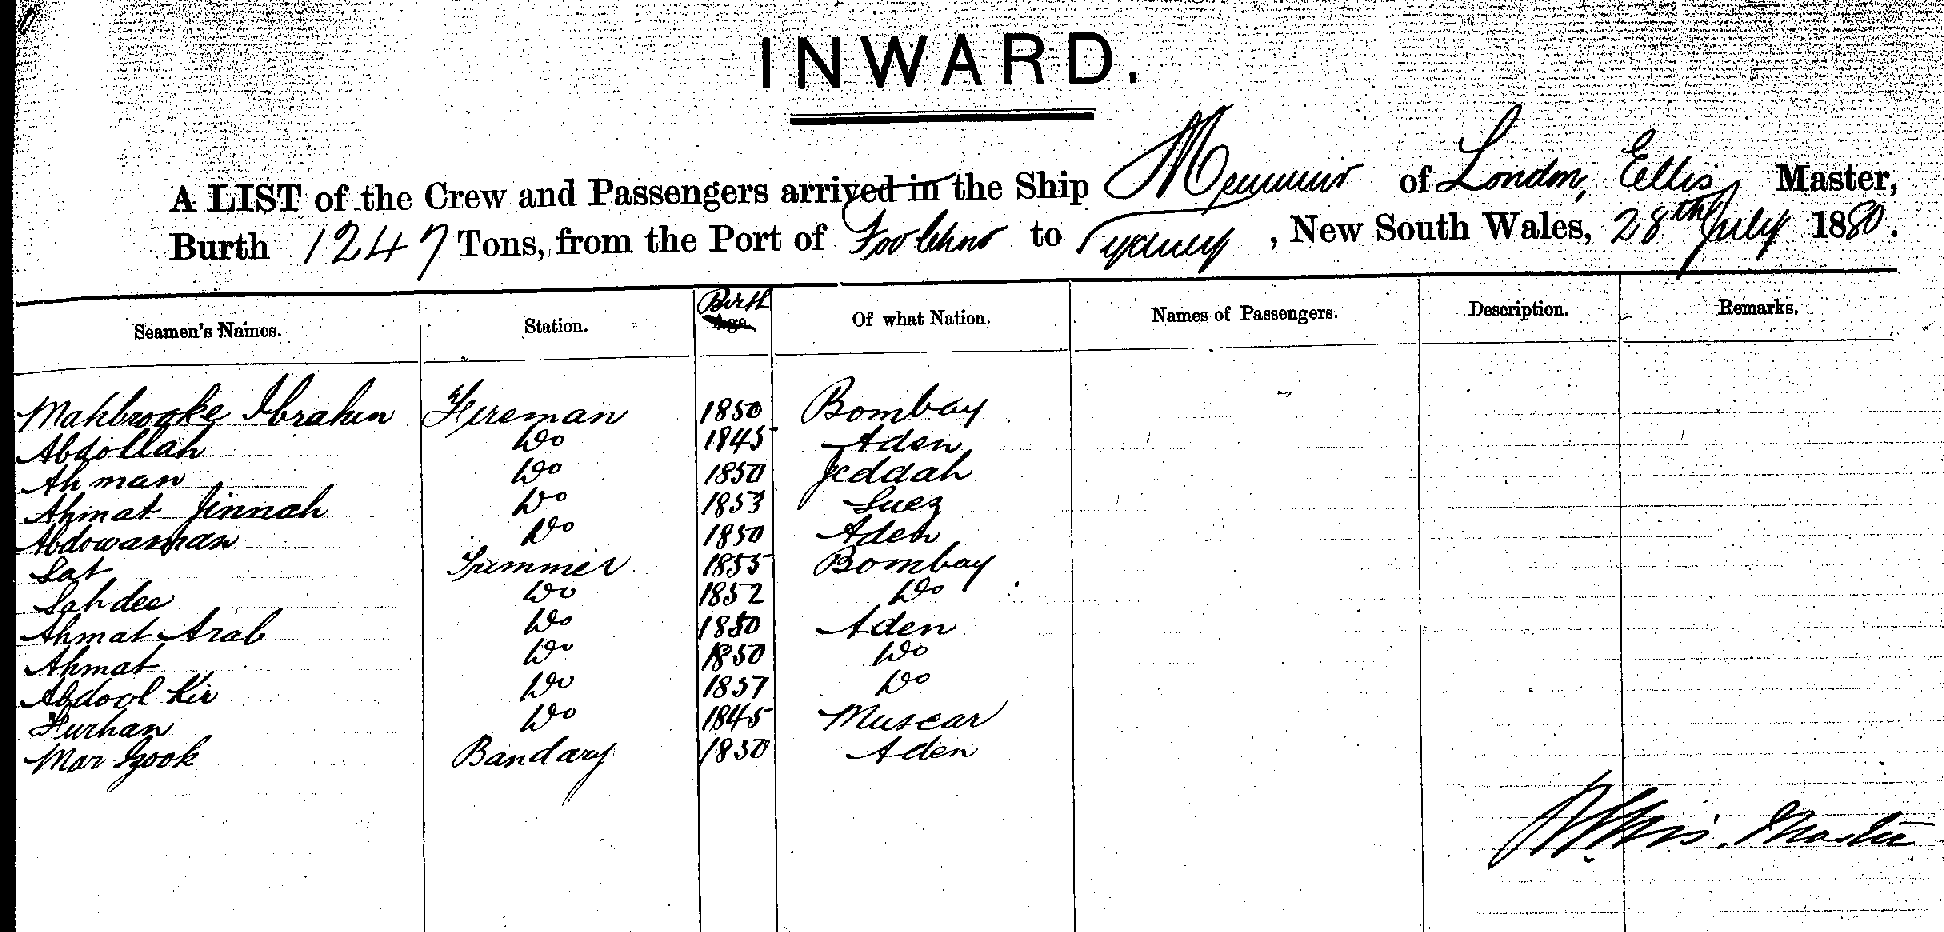 INWARD.
A LIST of the Crew and Passengers arrived in the Ship Memnuir of London, Ellis Master,
Burth 1247 Tons, from the Port of Foo Chow to Sydney, New South Wales, 28th July 1880.
Seamen's Names. Station. Birth Age. Of what Nation. Names of Passengers. Description. Remarks.
Mahbrooke Ibrahim Fireman 1850 Bombay
Abdollah Do 1845 Aden
Ahman Do 1850 Jeddah
Ahmat Jinnah Do 1853 Suez
Abdowarman Do 1850 Aden
Sat Trimmer 1855 Bombay
Sahdee Do 1852 Do
Ahmat Arab Do 1850 Aden
Ahmat Do 1850 Do
Abdool Kir Do 1857 Do
Furhan Do 1845 Muscar
Mar Zook Bandary 1850 Aden
Ellis. Master